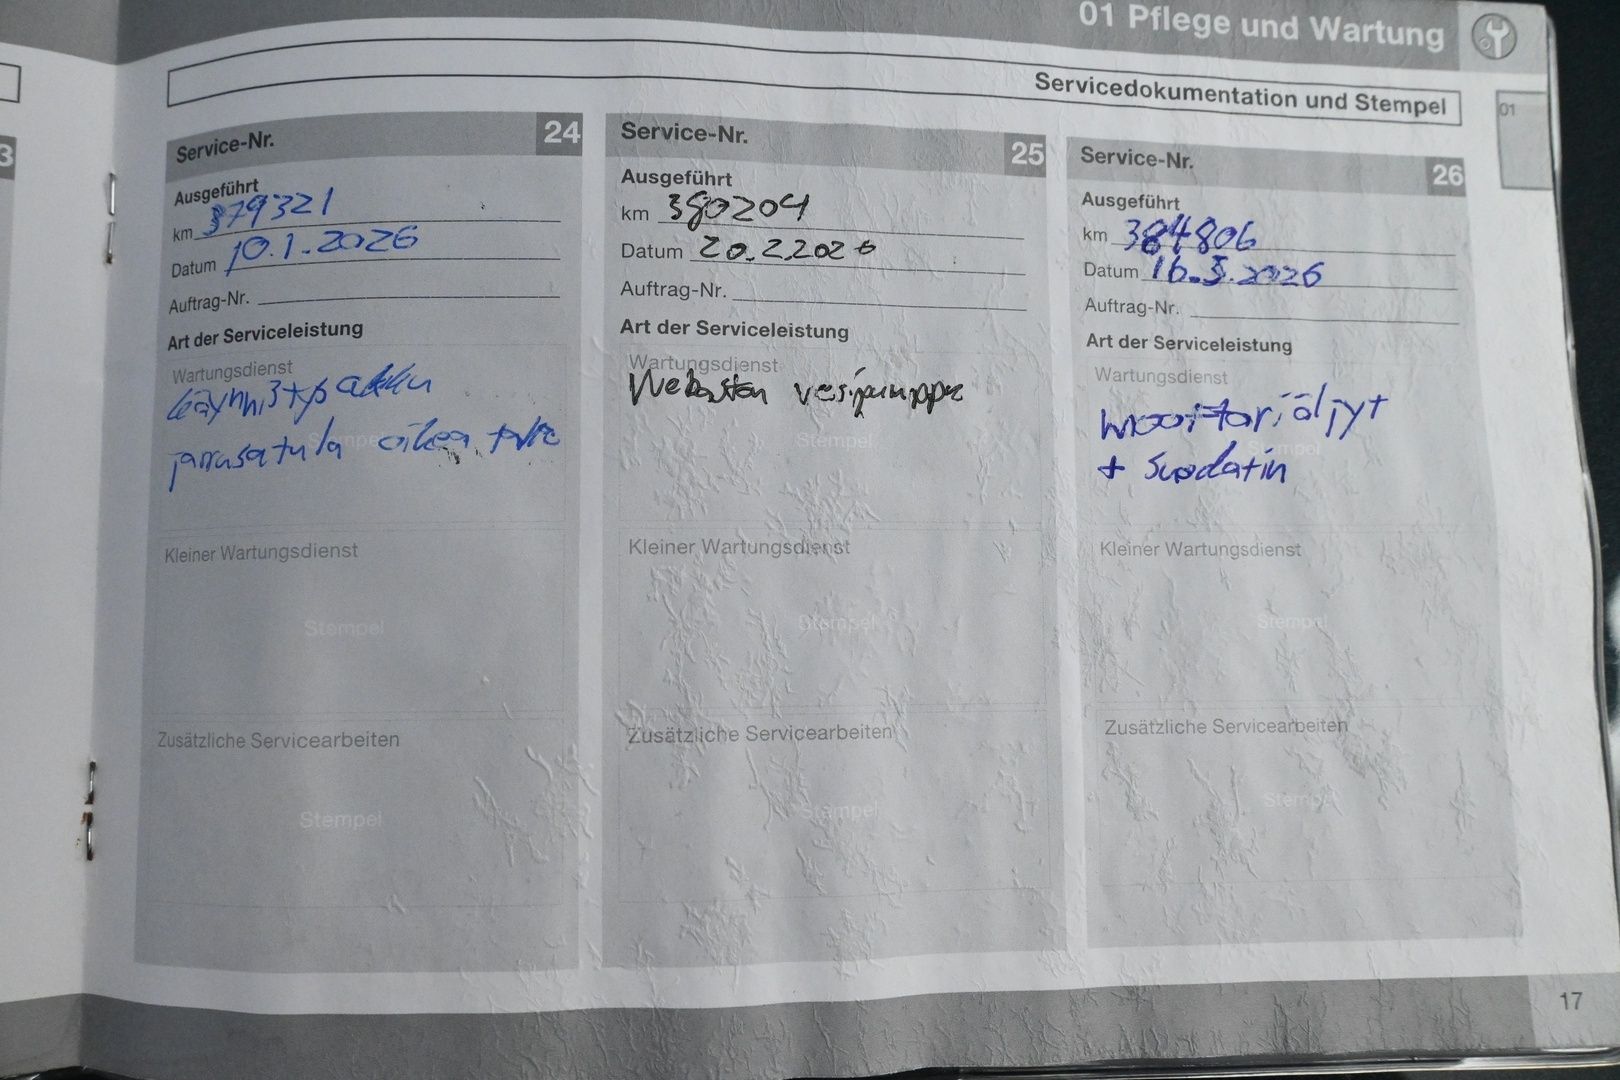 01 Pflege und Wartung
Servicedokumentation und Stempel
01
3
Service-Nr. 24
Ausgeführt
km 379321
Datum 10.1.2026
Auftrag-Nr.
Art der Serviceleistung
Wartungsdienst
käynnistysakku
jarrusatula oikea taka
Stempel
Kleiner Wartungsdienst
Stempel
Zusätzliche Servicearbeiten
Stempel
Service-Nr. 25
Ausgeführt
km 380204
Datum 20.2.2026
Auftrag-Nr.
Art der Serviceleistung
Wartungsdienst
Webaston vesipumppu
Stempel
Kleiner Wartungsdienst
Stempel
Zusätzliche Servicearbeiten
Stempel
Service-Nr. 26
Ausgeführt
km 384806
Datum 16.5.2026
Auftrag-Nr.
Art der Serviceleistung
Wartungsdienst
moottoriöljyt
+ suodatin
Stempel
Kleiner Wartungsdienst
Stempel
Zusätzliche Servicearbeiten
Stempel
17